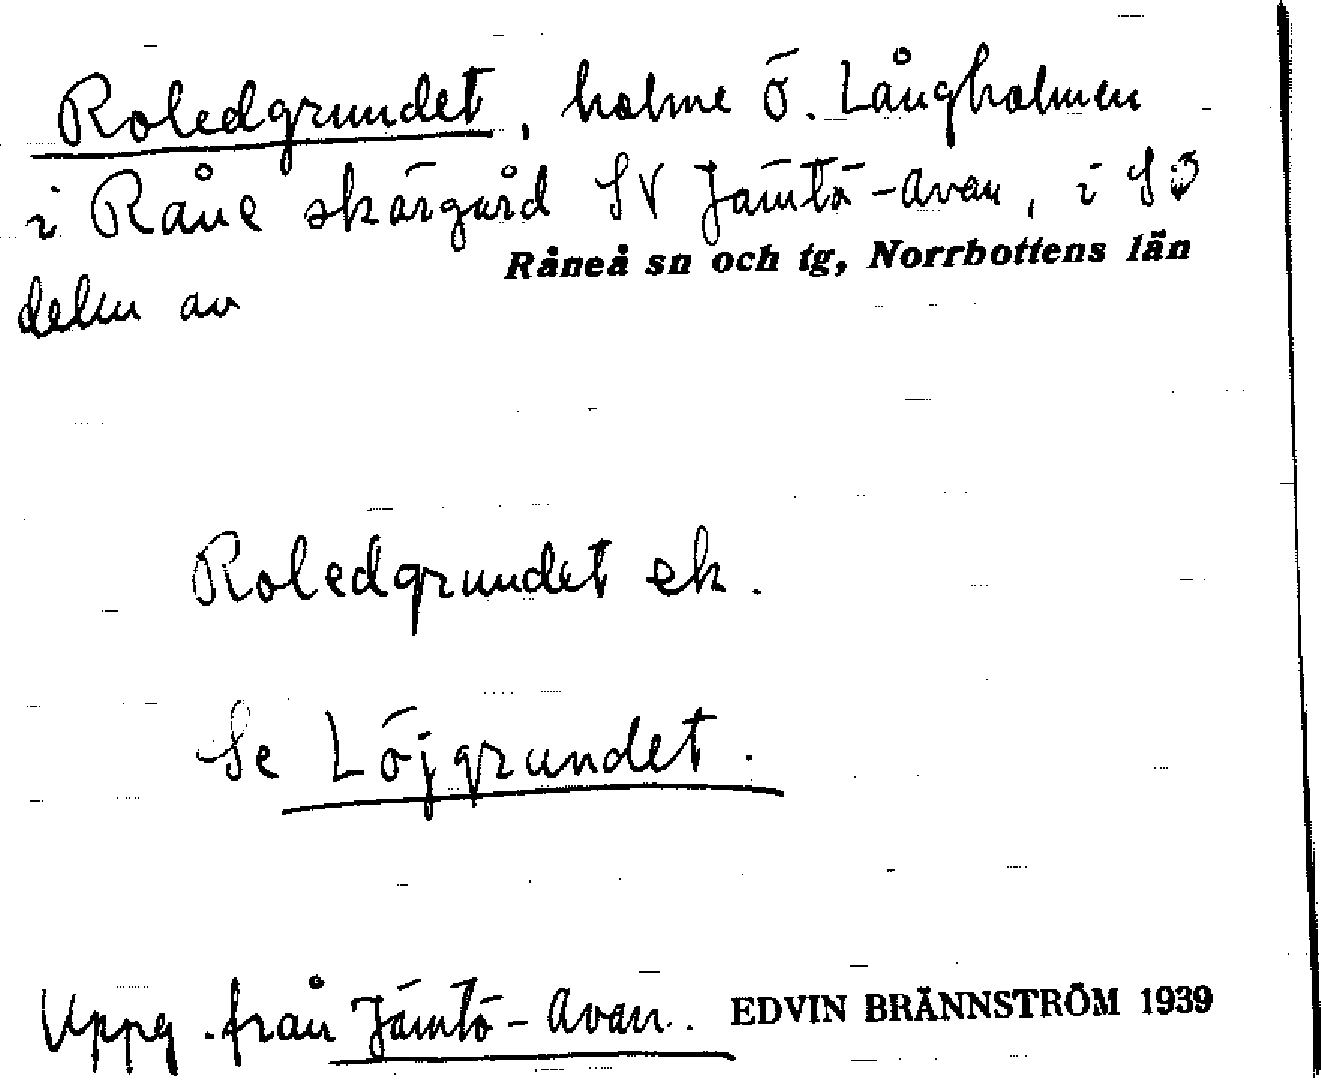 Roledgrundet, holme ö. Långholmen
i Råne skärgård SV Jämtö-Avan, i SÖ
Råneå sn och tg, Norrbottens län
delen av
Roledgrundet ek.
Se Löjgrundet.
Uppg. från Jämtö-Avan. EDVIN BRÄNNSTRÖM 1939